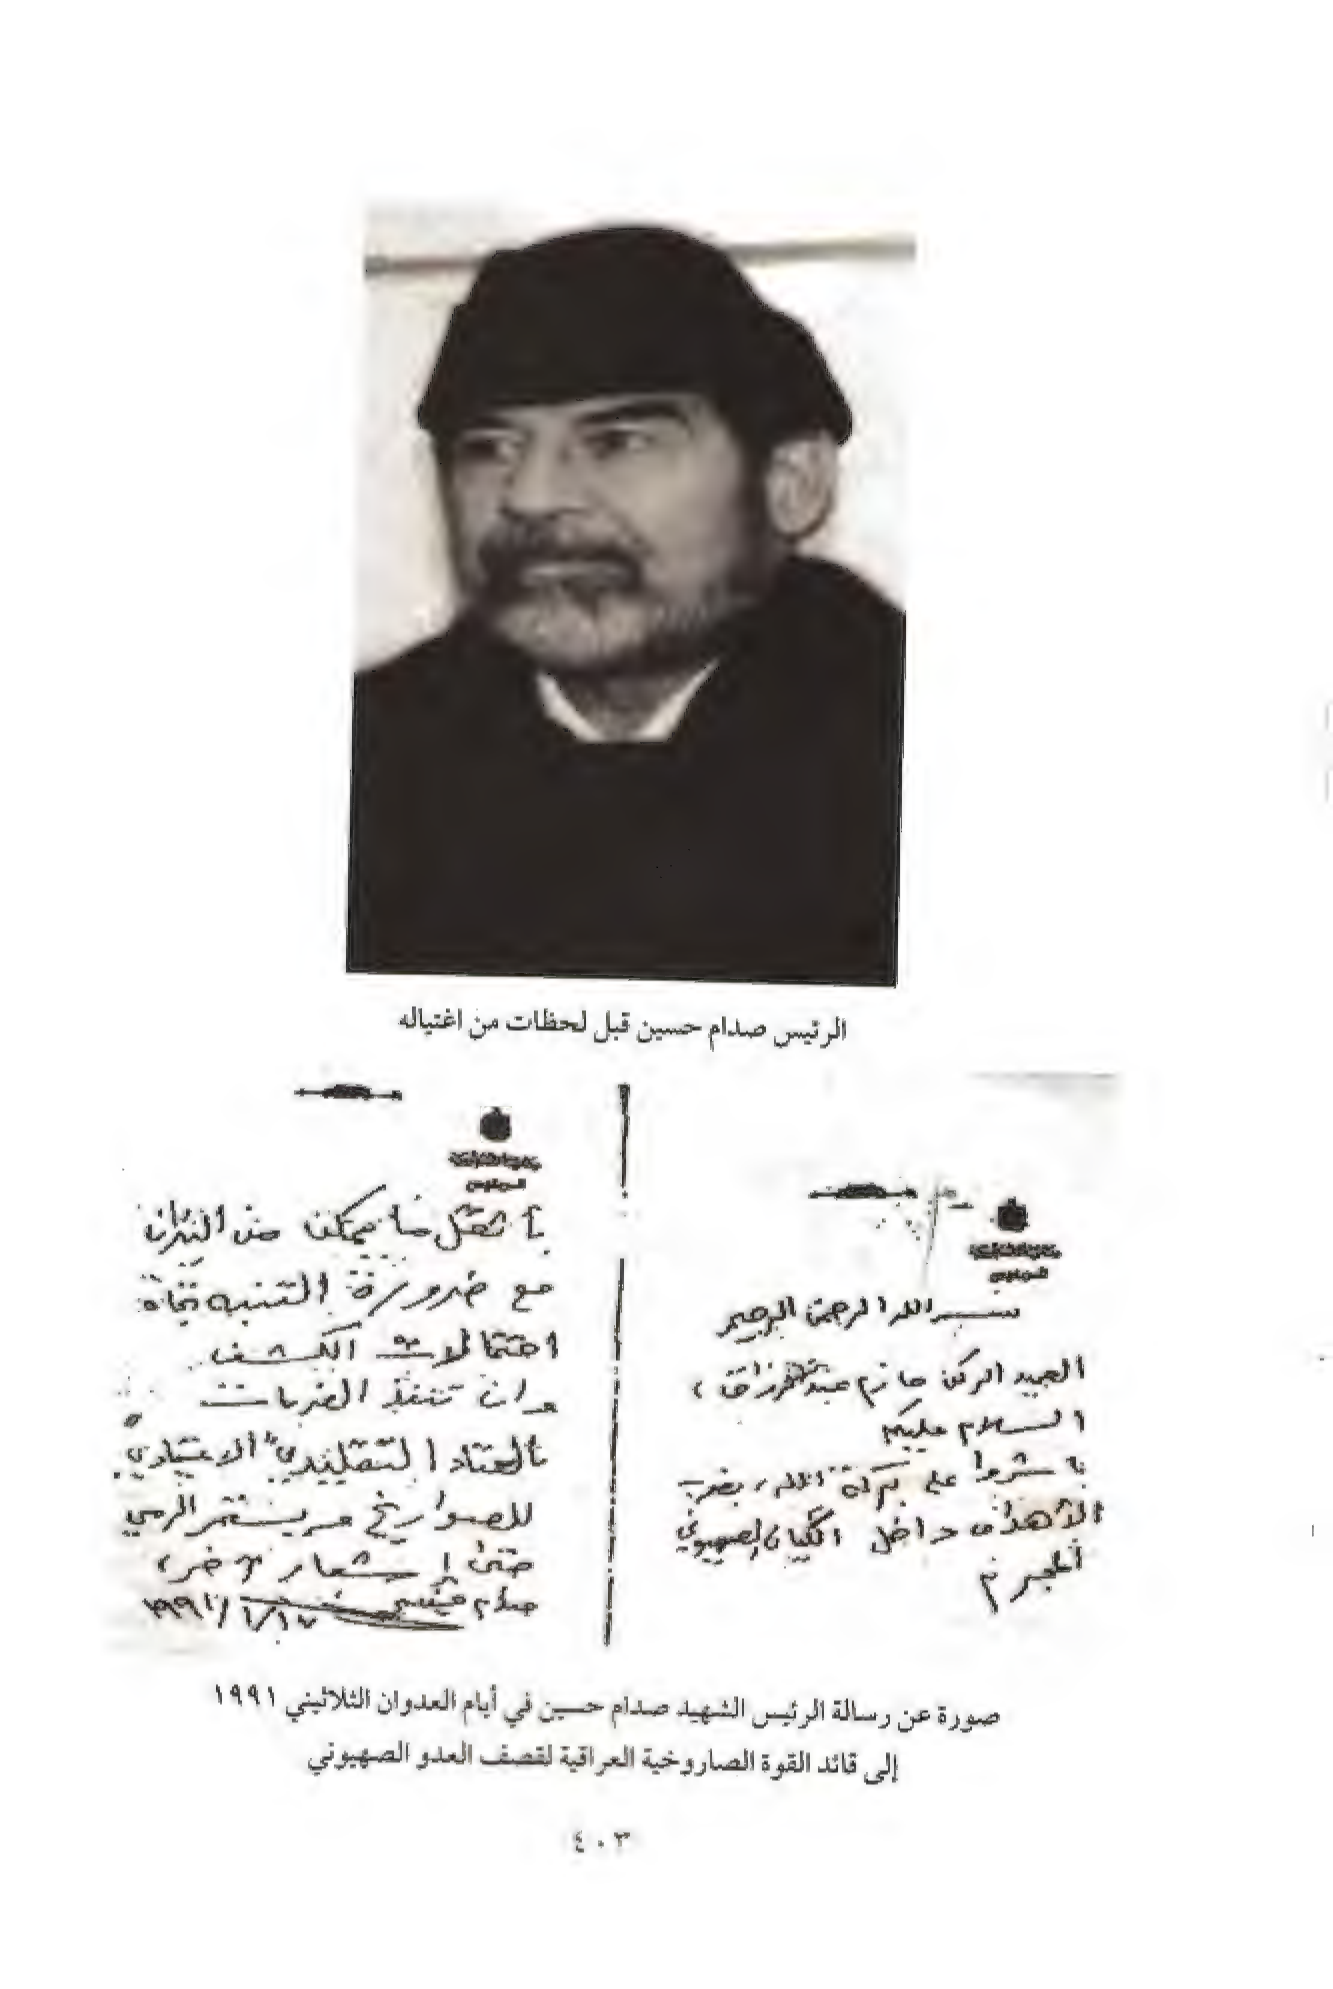 الرئيس صدام حسين قبل لحظات من اغتياله
بسم الله الرحمن الرحيم
العميد الركن حازم عبد الرزاق ،
السلام عليكم
باشروا على بركة الله ، بضرب
الأهداف داخل الكيان الصهيوني
المجرم
بأثقل ما يمكن من النيران
مع ضرورة التنبه تجاه
احتمالات الكشف
وان تنفذ الضربات
بالعتاد التقليدي "الاعتيادي"
للصواريخ ويستمر الرمي
حتى إشعار آخر ،
صدام حسين
١٩٩١/١/١٧
صورة عن رسالة الرئيس الشهيد صدام حسين في أيام العدوان الثلاثيني ١٩٩١
إلى قائد القوة الصاروخية العراقية لقصف العدو الصهيوني
٤٠٣